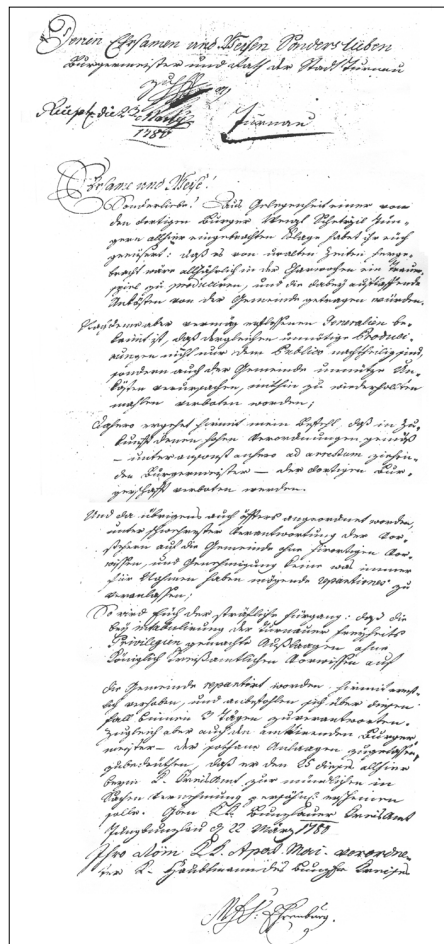 Denen Ehrsamen und Weisen Sonderslieben
Burgermeister und Rath der Stadt Turnau
zu
Turnau
Ehrsame und Weise!
Sonderliebe! Aus Gelegenheit einer von
den dortigen Bürger
allhier eingebrachten Klage habet ihr euch
geäusert: daß es von uralten Zeiten herge-
bracht wäre alljährlich in der Charwochen ein Trauer-
spiel zu produciren, und die dabey auflaffende
Unkösten von der Gemeinde getragen würden.
Nachdeme aber vermög erflossenen Generalien be-
kannt ist, daß dergleichen unnöthige Produci-
rungen nicht nur dem Publico nachtheilig sind,
sondern auch der Gemeinde unnütze Un-
kösten verursachen, mithin zu wiederholten
mahlen verboten worden;
Dahero ergehet hiemit mein Befehl, daß in Zu-
kunft denen hohen Verordnungen gemäß
den Burgermeister — der dortigen Bur-
gerschaft verboten werden.
Und da übrigens auch öfters angeordnet worden,
unter schwerester Verantwortung der Vor-
stehern auf die Gemeinde ohne hierortigen Vor-
wissen, und Genehmigung keine was immer
für Nahmen haben mögende repartiones zu
veranlassen;
So wird Euch der sträfliche Fürgang: daß die
bey der Turnauer Freyheits
Privilegien gemachte Auslagen ohne
Königlich Kreisamtlichen Vorwissen auf
die Gemeinde repartirt worden hiemit ernst-
lich verhoben, und anbefohlen sich über diesen
fall binnen 3 Tägen zu verantworten.
Zugleich aber auch den amtirenden Burger
meister — der sothane Anlagen zugelassen,
zubedeuthen, daß er den 25 dieses allhier
beym K. Kreisamt zur mündlichen in
Sachen Vernehmung erscheinen
solle. K. K. Bunzlauer Kreisamt
Jungbunzlau d 22 März 1780
Ihro Röm. K. K. Apost. Mai. verordne-
ter K. Haubtmann des Bunzl. Kreises